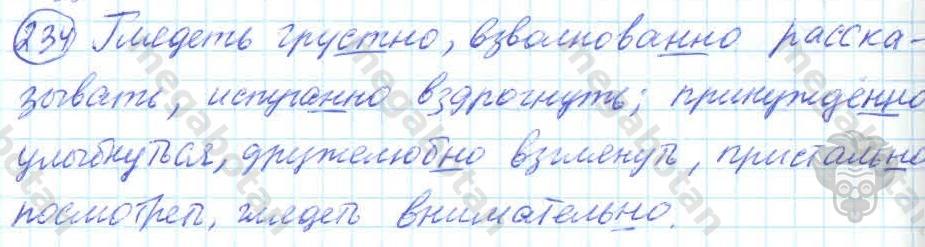 234 Глядеть грустно, взволнованно расска-
зывать, испуганно вздрогнуть; принуждённо
улыбнуться, дружелюбно взглянуть, пристально
посмотреть, глядеть внимательно.
megabotan